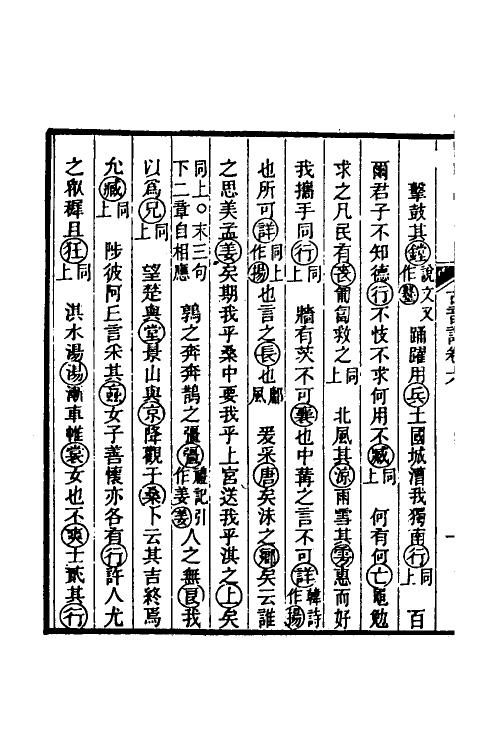 擊鼓其鏜說文又作鼞踊躍用兵土國城漕我獨南行同上百
爾君子不知德行不忮不求何用不臧同上何有何亡黽勉
求之凡民有喪匍匐救之同上北風其涼雨雪其雱惠而好
我攜手同行同上牆有茨不可襄也中冓之言不可詳韓詩作揚
也所可詳同上作揚也言之長也鄘風爰采唐矣沬之鄉矣云誰
之思美孟姜矣期我乎桑中要我乎上宮送我乎淇之上矣
同上○末三句下二章自相應鶉之奔奔鵲之彊彊禮記引作姜姜人之無良我
以爲兄同上望楚與堂景山與京降觀于桑卜云其吉終焉
允臧同上陟彼阿丘言采其蝱女子善懷亦各有行許人尤
之衆穉且狂同上淇水湯湯漸車帷裳女也不爽士貳其行